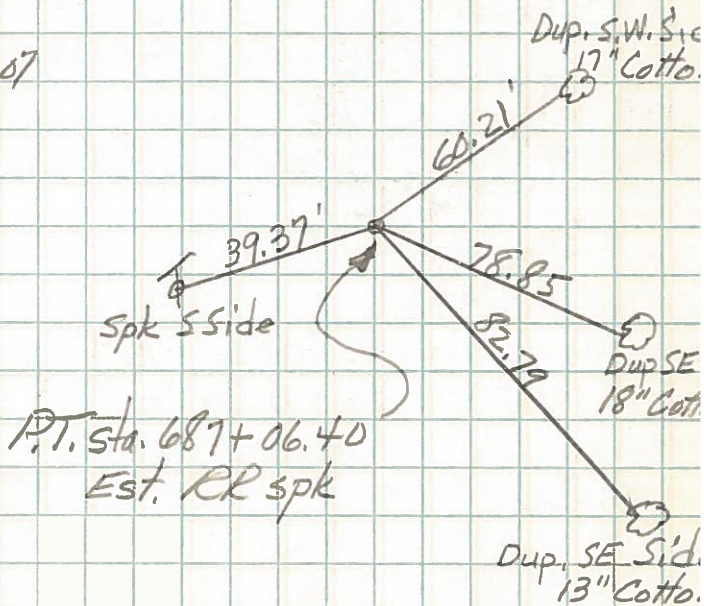 07
Dup. S.W. Sid
17" Cotto.
60.21'
39.37'
78.85
82.79
Spk S Side
Dup SE
18" Cott
P.T. Sta. 687+06.40
Est. RR spk
Dup. SE Sid.
13" Cotto.